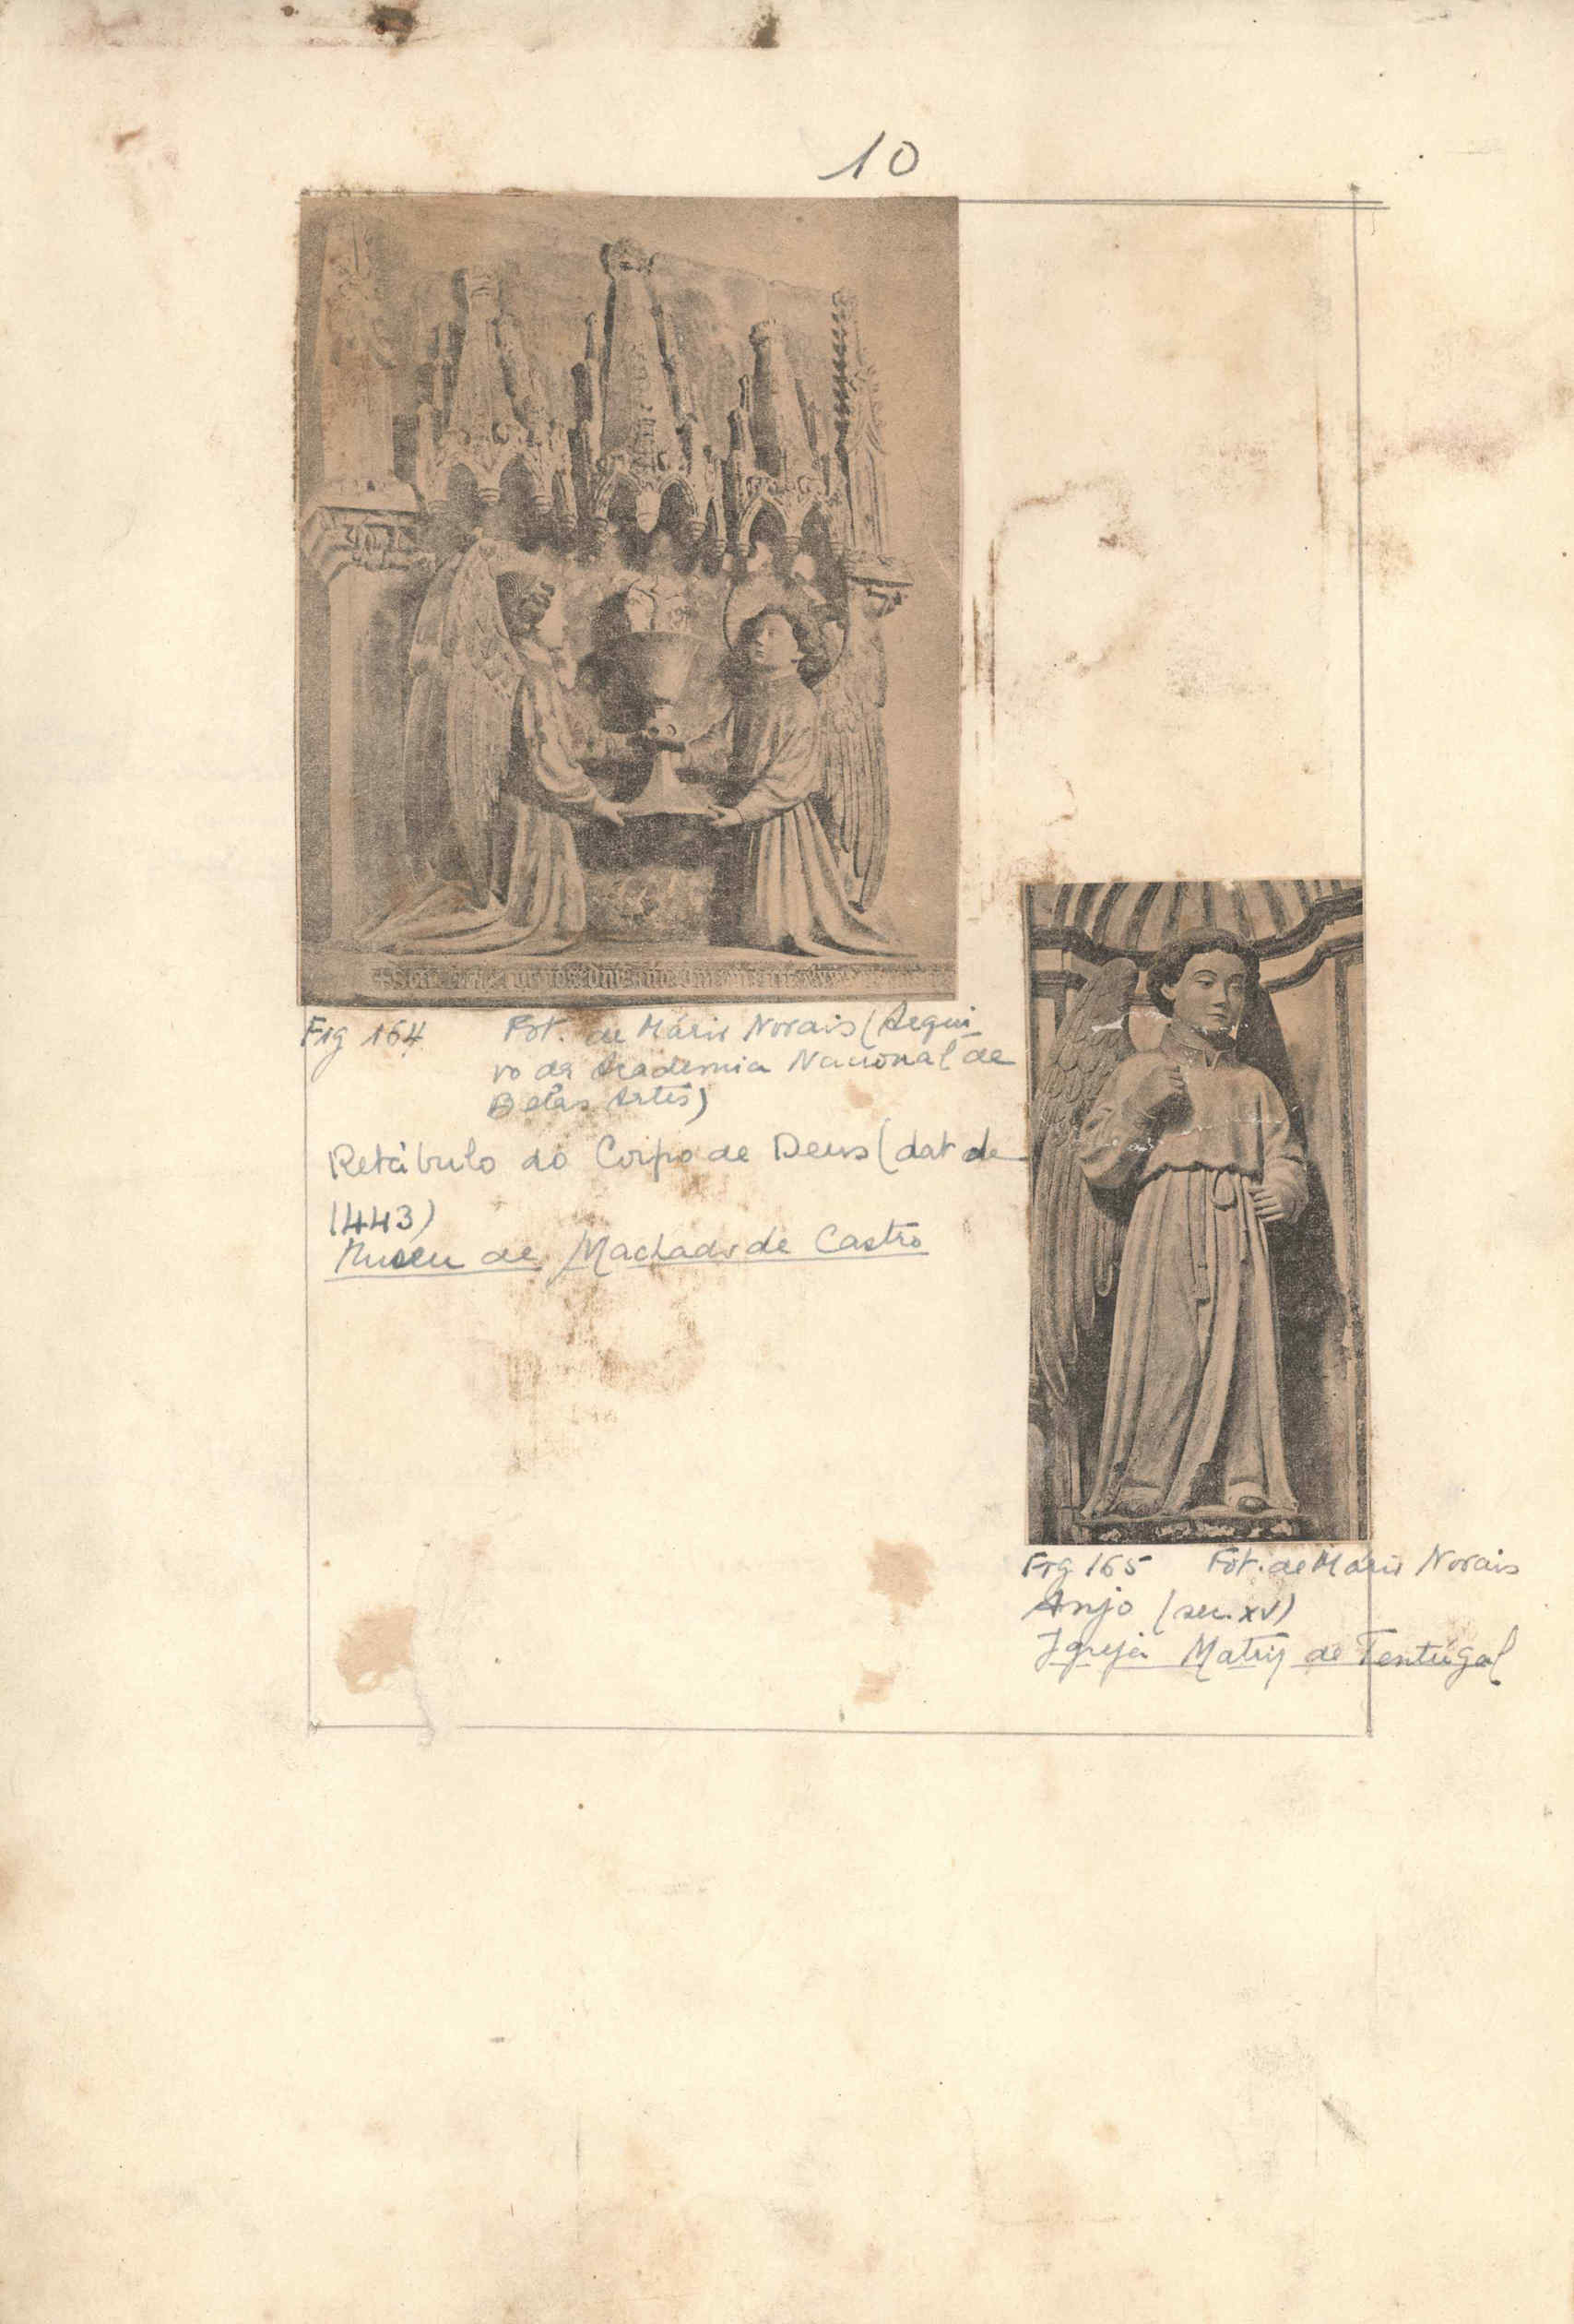 10
Fig 164 Fot. de Mário Novais (Arqui-
vo da Academia Nacional de
Belas Artes)
Retábulo do Corpo de Deus (dat de
1443)
Museu de Machado de Castro
Fig 165 Fot. de Mário Novais
Anjo (sec. XV)
Igreja Matriz de Tentúgal